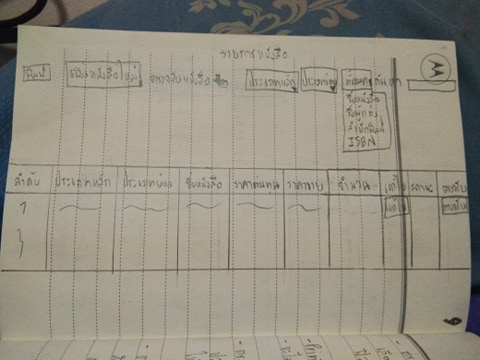 รายการหนังสือ
พิมพ์ เพิ่มหนังสือใหม่ ตรวจรับหนังสือ ประเภทหลัก ประเภทย่อย ค้นหา
ชื่อหนังสือ
ชื่อผู้แต่ง
สำนักพิมพ์
ISBN
ลำดับ ประเภทหลัก ประเภทย่อย ชื่อหนังสือ ราคาต้นทุน ราคาขาย จำนวน แก้ไข สถานะ
1 แก้ไข